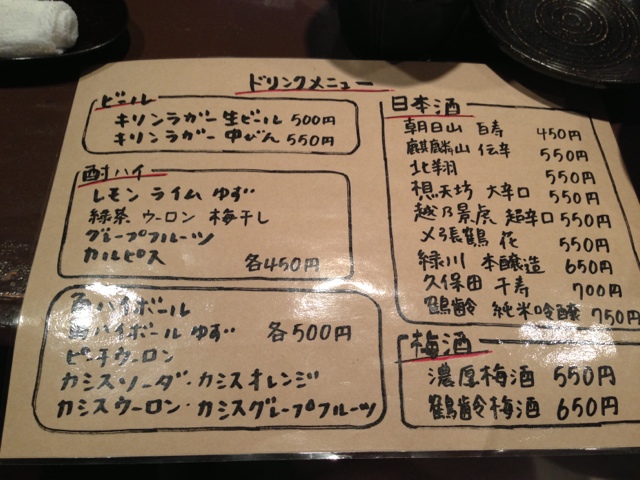 ドリンクメニュー
ビール
キリンラガー 生ビール 500円
キリンラガー 中びん 550円
酎ハイ
レモン ライム ゆず
緑茶 ウーロン 梅干し
グレープフルーツ
カルピス 各450円
ハイボール
ハイボール ゆず 各500円
ピーチウーロン
カシスソーダ・カシスオレンジ
カシスウーロン・カシスグレープフルーツ
日本酒
朝日山 百寿 450円
麒麟山 伝辛 550円
北翔 550円
想天坊 大辛口 550円
越乃景虎 超辛口 550円
〆張鶴 花 550円
緑川 本醸造 650円
久保田 千寿 700円
鶴齢 純米吟醸 750円
梅酒
濃厚梅酒 550円
鶴齢梅酒 650円